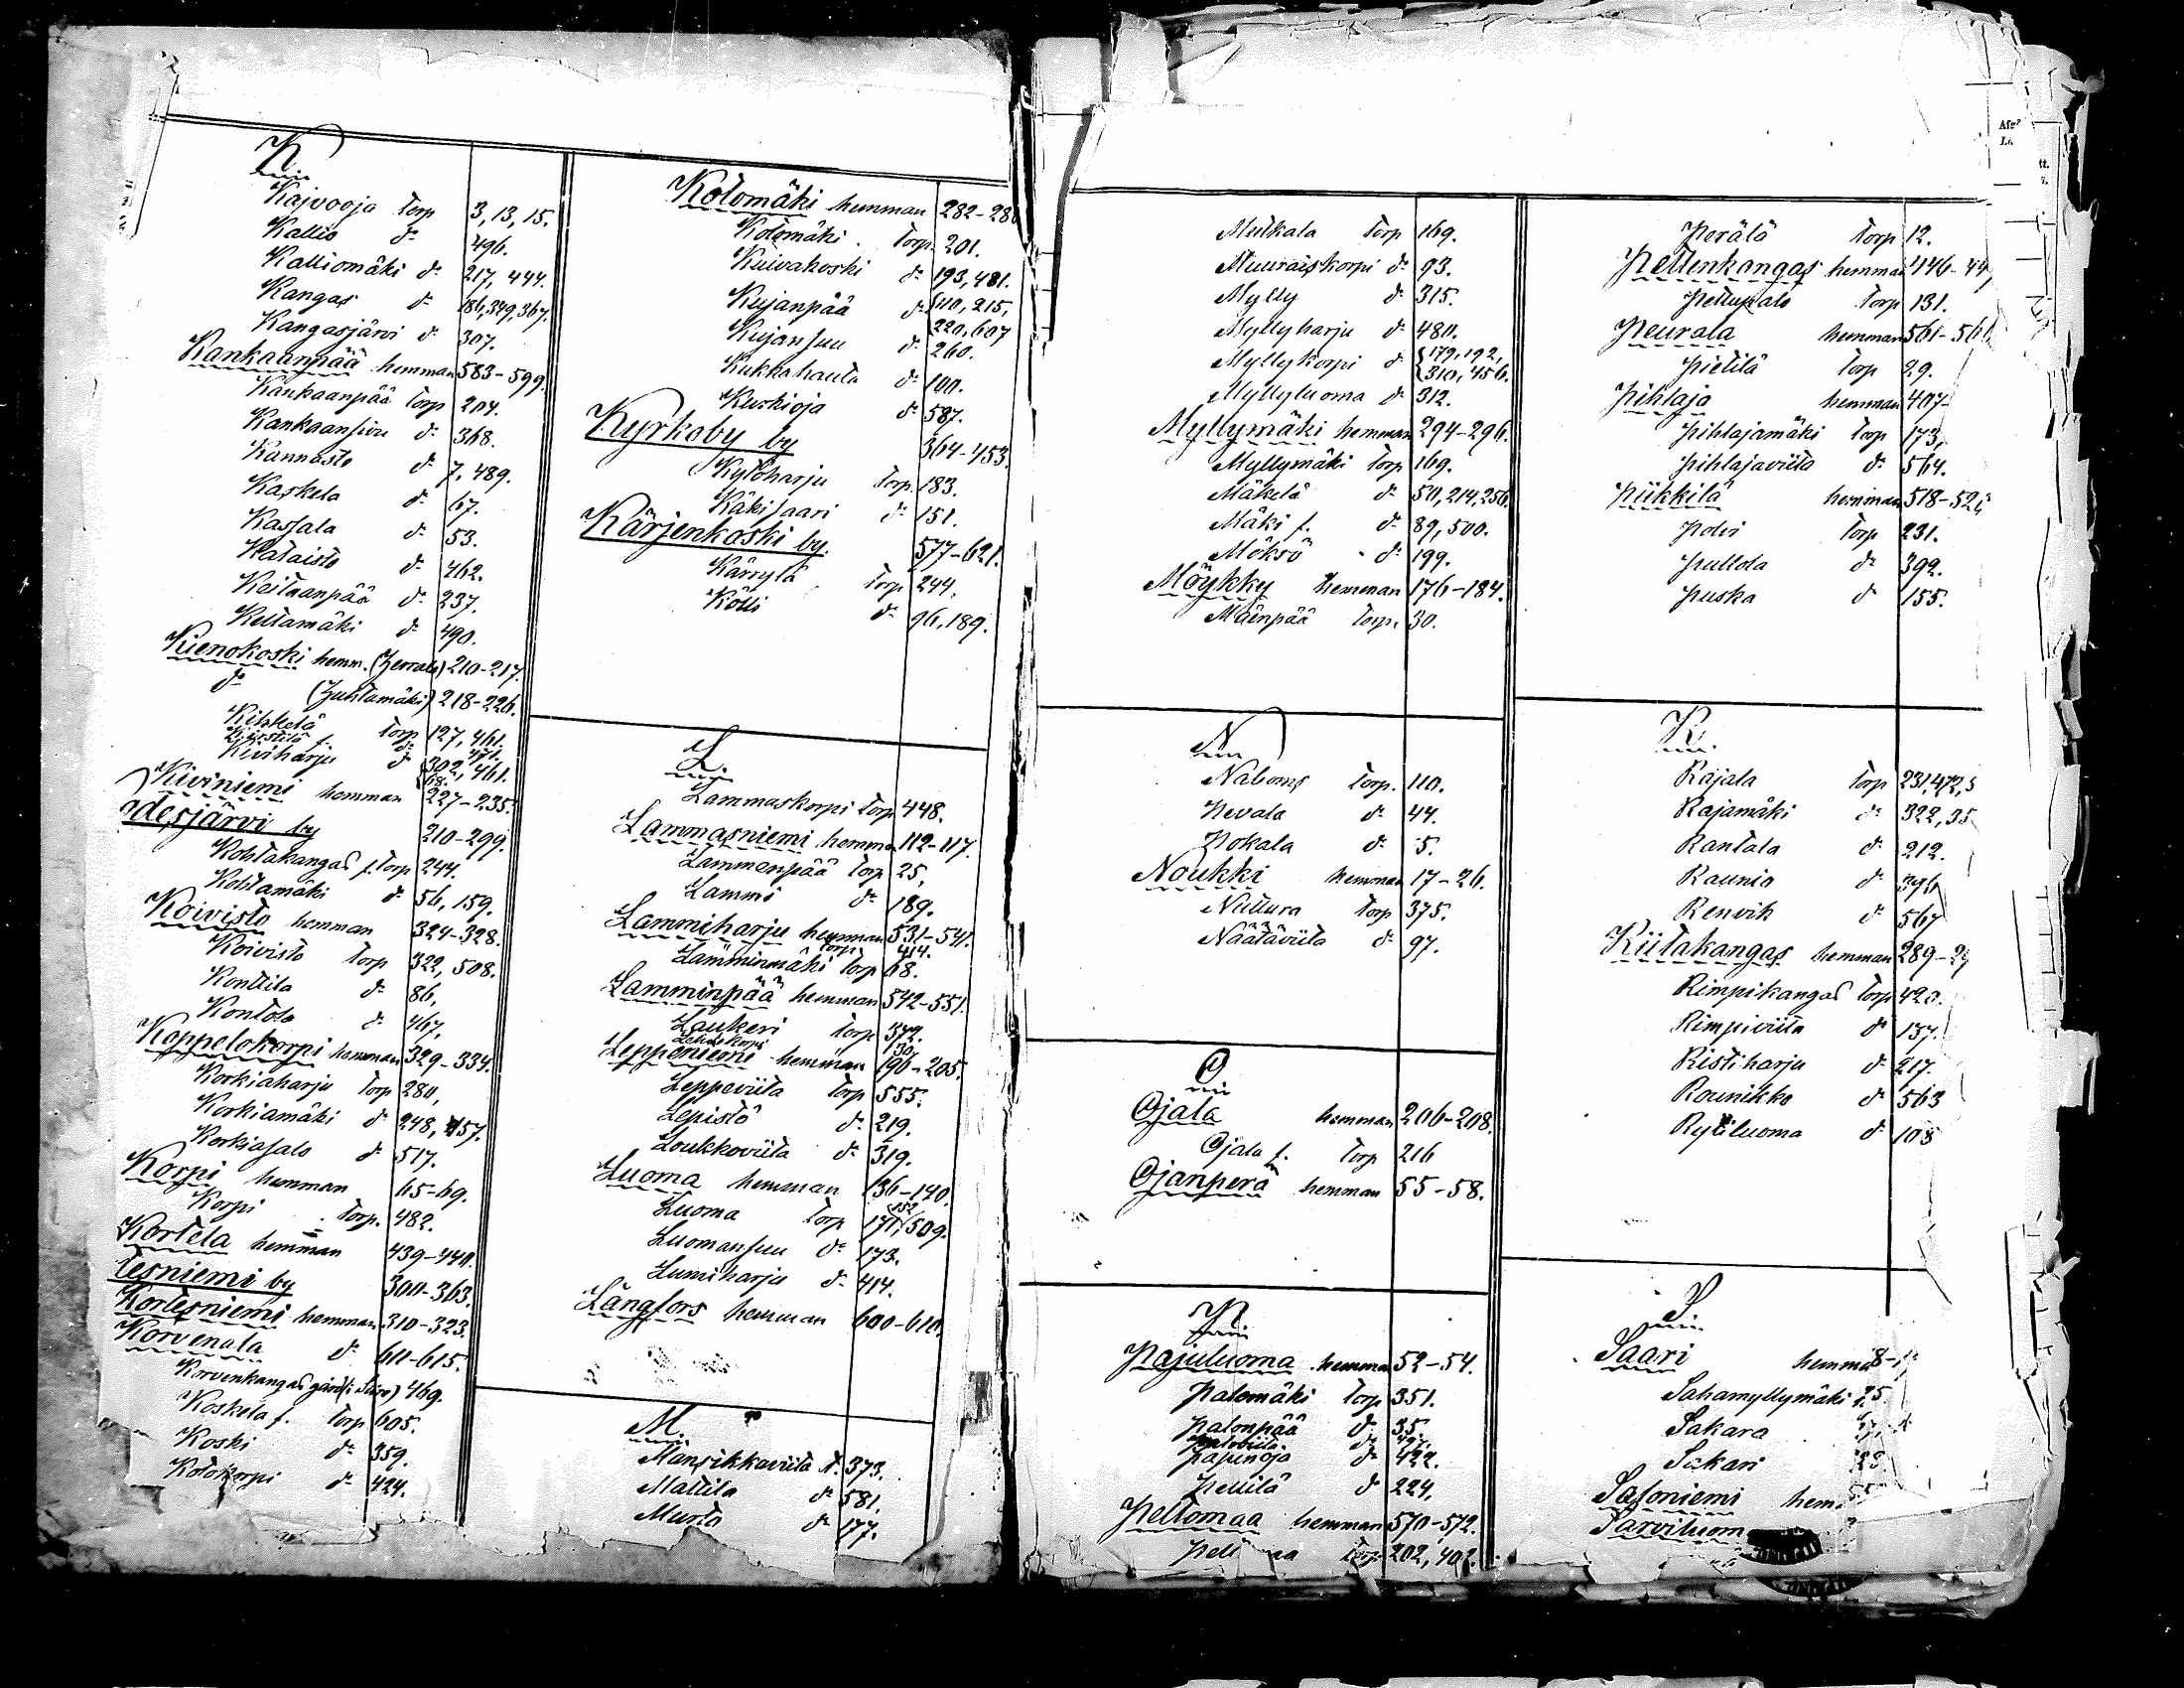 K
Kajvooja Torp 3, 13, 15.
Kallio d:o 496.
Kalliomäki d:o 217, 444.
Kangas d:o 186, 349, 367.
Kangasjärvi d:o 307.
Kankaanpää hemman 583-599.
Kankaanpää Torp 204.
Kankaansivu d:o 368.
Kannosto d:o 7, 489.
Kaskela d:o 67.
Kassala d:o 53.
Kataisto d:o 462.
Keitaanpää d:o 237.
Keltamäki d:o 490.
Kienokoski hemm. 210-217.
d:o (Juhtamäki) 218-226.
Kihkelä Torp 127, 461.
d:o 471.
Kiviharju d:o 302, 461.
68.
Kiviniemi hemman 227-235.
desjärvi by 210-299.
Kohtakangas f. Torp 244.
Kohtamäki d:o 56, 159.
Koivisto hemman 324-328.
Koivisto Torp 322, 508.
Konttila d:o 86,
Kontola d:o 467,
Koppelokorpi hemman 329-334.
Korkiaharju Torp 280,
Korkiamäki d:o 248, 457.
Korkiasalo d:o 517.
Korpi hemman 65-69.
Korpi Torp. 482.
Kortela hemman 439-440.
tesniemi by 300-363.
Kortesniemi hemman 310-323.
Korvenala d:o 611-615.
Korvenkangas gård 469.
Koskela f. Torp 605.
Koski d:o 359.
Kotokorpi d:o 424.
Kotomäki hemman 282-28
Kotomäki Torp. 201.
Kuivakoski d:o 193, 481.
Kujanpää d:o 110, 215,
220, 607
Kujansuu d:o 260.
Kukkahauta d:o 100.
Kuskioja d:o 587.
Kyrkoby by 364-453.
Kytöharju Torp. 183.
Käkisaari d:o 151.
Kärjenkoski by. 577-621.
Kärrylä Torp 244,
Kötti d:o 96, 189.
L
Lammaskorpi Torp 448.
Lammasniemi hemman 112-117.
Lammenpää Torp 25,
Lammi d:o 189.
Lammiharju hemman 531-541.
Torp. 414.
Lamminmäki Torp 68.
Lamminpää hemman 542-551.
Laukeri Torp 372.
30,
Leppeniemi hemman 190-205.
Leppeviita Torp 555.
Lepistö d:o 219.
Loukkoviita d:o 319.
Luoma hemman 136-140.
152
Luoma Torp 171, 509.
Luomansuu d:o 173,
Lumiharju d:o 414.
Långfors hemman 600-610.
M.
Mansikkaviita t. 373.
Mattila d:o 581,
Musta d:o 177.
Mutkala Torp 169.
Muuraiskorpi d:o 93.
Mylly d:o 315.
Myllyharju d:o 480.
Myllykorpi d:o 179, 192,
310, 456.
Myllyluoma d:o 312.
Myllymäki hemman 294-296.
Myllymäki Torp 169.
Mäkelä d:o 50, 214, 256.
Mäki f. d:o 89, 500.
Möksö d:o 199.
Möykky hemman 176-184.
Mäenpää Torp. 30.
N
Naboms Torp. 110.
Nevala d:o 44.
Nokala d:o 5.
Noukki hemman 17-26.
Nuttura Torp 375.
Näätäviita d:o 97.
O
Ojala hemman 206-208.
Ojala f. Torp 216
Ojanperä hemman 55-58.
P
Pajuluoma hemman 52-54.
Palomäki Torp 351.
Palonpää d:o 35.
d:o 497.
Papinoja d:o 422.
Pellilä d:o 224,
Peltomaa hemman 570-572.
Torp 202, 402.
Perälä Torp 12.
Pettenkangas hemman 446-44
Pettupalo Torp 131.
Peurala hemman 561-56
Pietilä Torp 29.
Pihlaja hemman 407-
Pihlajamäki Torp 173,
Pihlajaviita d:o 564.
Piikkilä hemman 518-52
Polvi Torp 231.
Pullola d:o 392.
Puska d:o 155.
R.
Rajala Torp 231, 472, 5
Rajamäki d:o 322, 35
Rantala d:o 212.
Raunio d:o
Renvik d:o 567
Riitakangas hemman 289-29
Rimpikangas Torp 420.
Rimpiviita d:o 137.
Ristiharju d:o 217.
Rounikko d:o 563
Rytiluoma d:o 108
S.
Saari hemma 8-1
Sahamyllymäki 25
Sakara
Sakari
Saloniemi hem
Sarviluom